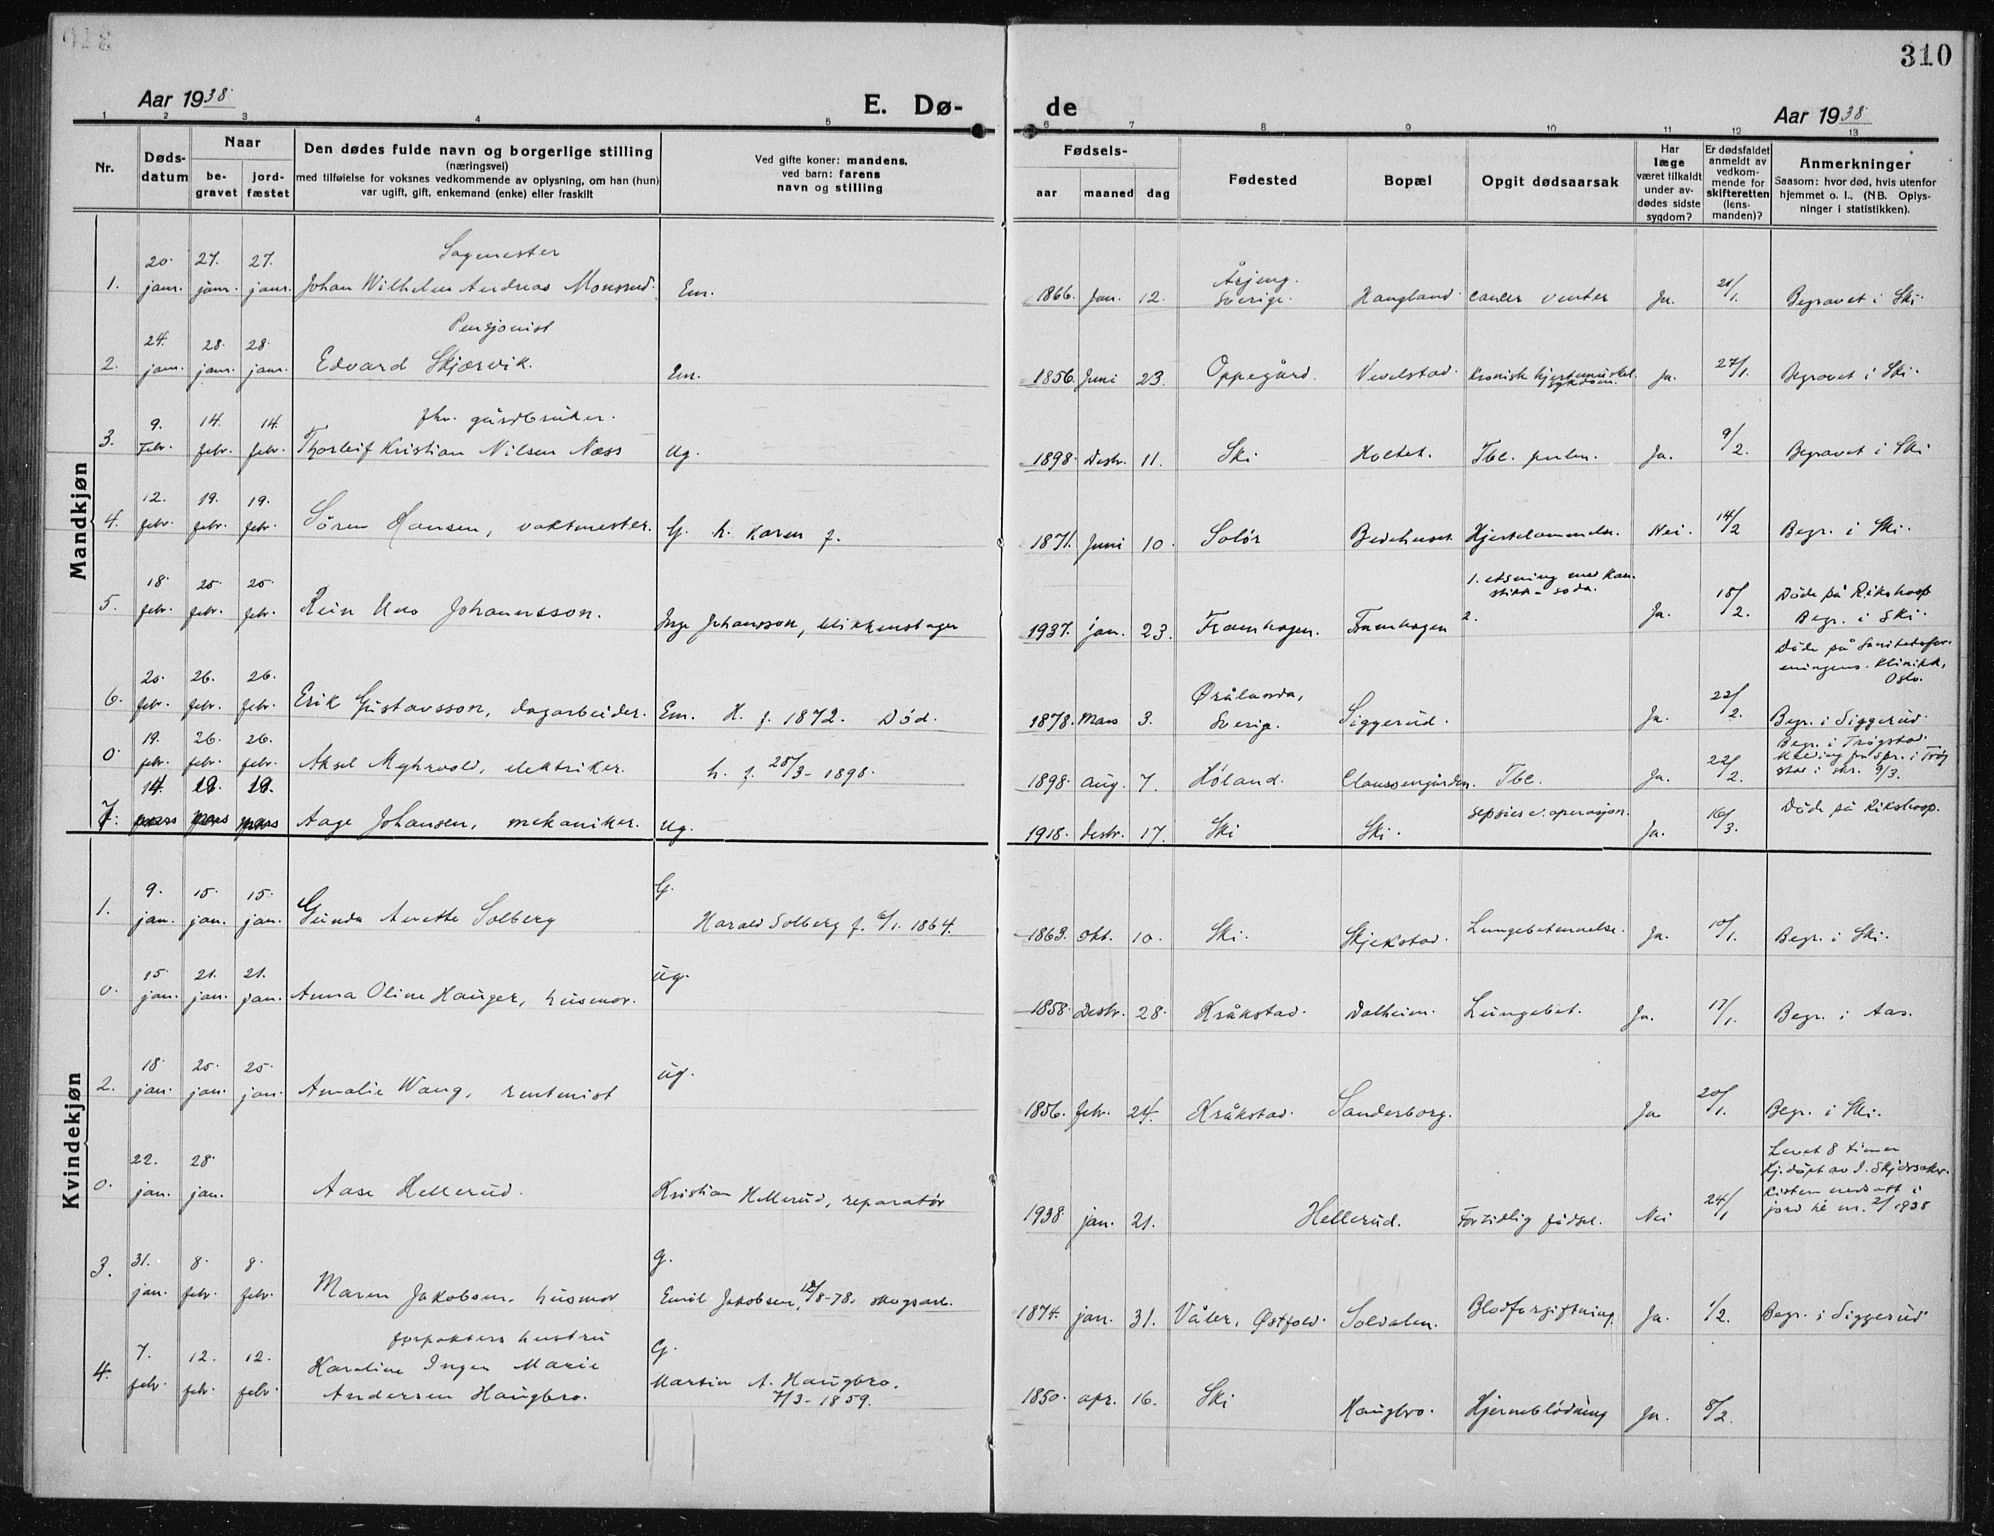 310
Aar 1938
E. Dø-
de
Aar 1938
1 2 3 4 5 6 7 8 9 10 11 12 13
Nr.
Døds-
datum
Naar
be-
gravet
jord-
fæstet
Den dødes fulde navn og borgerlige stilling
(næringsvei)
med tilføielse for voksnes vedkommende av oplysning, om han (hun)
var ugift, gift, enkemand (enke) eller fraskilt
Ved gifte koner: mandens,
ved barn: farens
navn og stilling
Fødsels-
aar maaned dag
Fødested
Bopæl
Opgit dødsaarsak
Har
læge
været tilkaldt
under av-
dødes sidste
sygdom?
Er dødsfaldet
anmeldt av
vedkom-
mende for
skifteretten
(lens-
manden)?
Anmerkninger
Saasom: hvor død, hvis utenfor
hjemmet o. l., (NB. Oplys-
ninger i statistikken).
Mandkjøn
Sagmester
1. 20. janr. 27. janr. 27. janr. Johan Wilhelm Andreas Monsrud. Em. 1866. Jan. 12. Årjeng. Sverige. Haugland cancer venter Ja. 21/1. Begravet i Ski.
Pensjonist
2. 24. janr. 28. janr. 28. janr. Edvard Skjærvik. Em. 1856. Juni 23. Oppegård. Vevelstad. Kronisk hjertemuskelsykdom. Ja. 27/1. Begravet i Ski.
fhv. gårdbruker.
3. 9. Febr. 14. febr. 14. febr. Thorleif Kristian Nilsen Næss Ug. 1898. Desbr. 11. Ski Holtet. Tbc. pulm. Ja. 9/2. Begravet i Ski
4. 12. febr. 19. febr. 19. febr. Sören Hansen, vaktmester. G. h. Karen f. 1871. Juni 10. Solör Bedehuset Hjertelammelse. Nei. 14/2 Begr. i Ski.
5. 18. febr. 25. febr. 25. febr. Rein Uno Johannsson. Inge Johansson, blikkenslager 1937. jan. 23. Framhagen. Framhagen 1. etsning med kaustikk-soda. 2. Ja. 18/2. Döde på Rikshosp Begr. i Ski.
Döde på Sanitetsforeningens klinikk, Oslo.
6. 20. febr. 26. febr. 26. febr. Erik Gustavsson, dagarbeider. Em. H. f. 1872. Död. 1878. Mars 3. Sverige. Siggerud. Ja. 22/2. Begr. i Siggerud.
0 19. febr. 26. febr. 26. febr. Aksel Myhrvold, elektriker. h. f. 25/3-1898. 1898. Aug. 7. Höland. Claussengården. Tbc. Ja. 22/2. Begr. i Trögstad. Melding fra Spr. i Trögstad i skr. 9/3.
7. 14. mars 19. mars 19. mars Aage Johansen, mekaniker. Ug. 1918. Desbr. 17. Ski Ski. sepsis e. operasjon. Ja. 16/3. Döde på Rikshosp.
Kvindekjøn
1. 9. jan. 15. jan. 15. jan. Gunda Anette Solberg G. Harald Solberg f. 6/1. 1864. 1863. Okt. 10. Ski. Skjekstad. Lungebetennelse. Ja. 10/1. Begr. i Ski.
0. 15. jan. 21. jan. 21. jan. Anna Oline Hauger, husmor. ug. 1858. Desbr. 28. Kråkstad. Dalheim. Lungebet. Ja. 17/1. Begr. i Aas.
2. 18. jan. 25. jan. 25. jan. Amalie Wang, rentenist ug. 1856. febr. 24. Kråkstad. Sanderborg. Ja 20/1. Begr. i Ski.
0. 22. jan. 28. jan. Aase Hellerud. Kristian Hellerud, reparatör 1938. jan. 21. Hellerud. Fortidlig födsel. Nei 24/1 Levet 8 timer Hj.döpt av J. Skjörsaker. Kisten nedsatt i jord hé nr. 2/1938
3. 31. jan. 8. febr. 8. febr. Maren Jakobsen, husmor g. Emil Jakobsen, 12/8-78. skogsarb. 1874. jan. 31. Våler, Østfold. Soldalen. Blodforgiftning. Ja. 1/2. Begr. i Siggerud
forpakters hustru
4. 7. febr. 12. febr. 12. febr. Karoline Inger Marie Andersen Haugbro. G. Martin A. Haugbro. 7/3-1859. 1850. apr. 16. Ski Haugbro. Hjerneblödning Ja. 8/2.